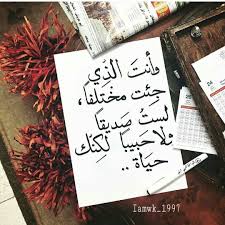 وأنتَ الذّي
جئت مختلفًا،
لستُ صديقًا
ولا حبيبًا لكِنّك
حياة ..
Iamwk_1997